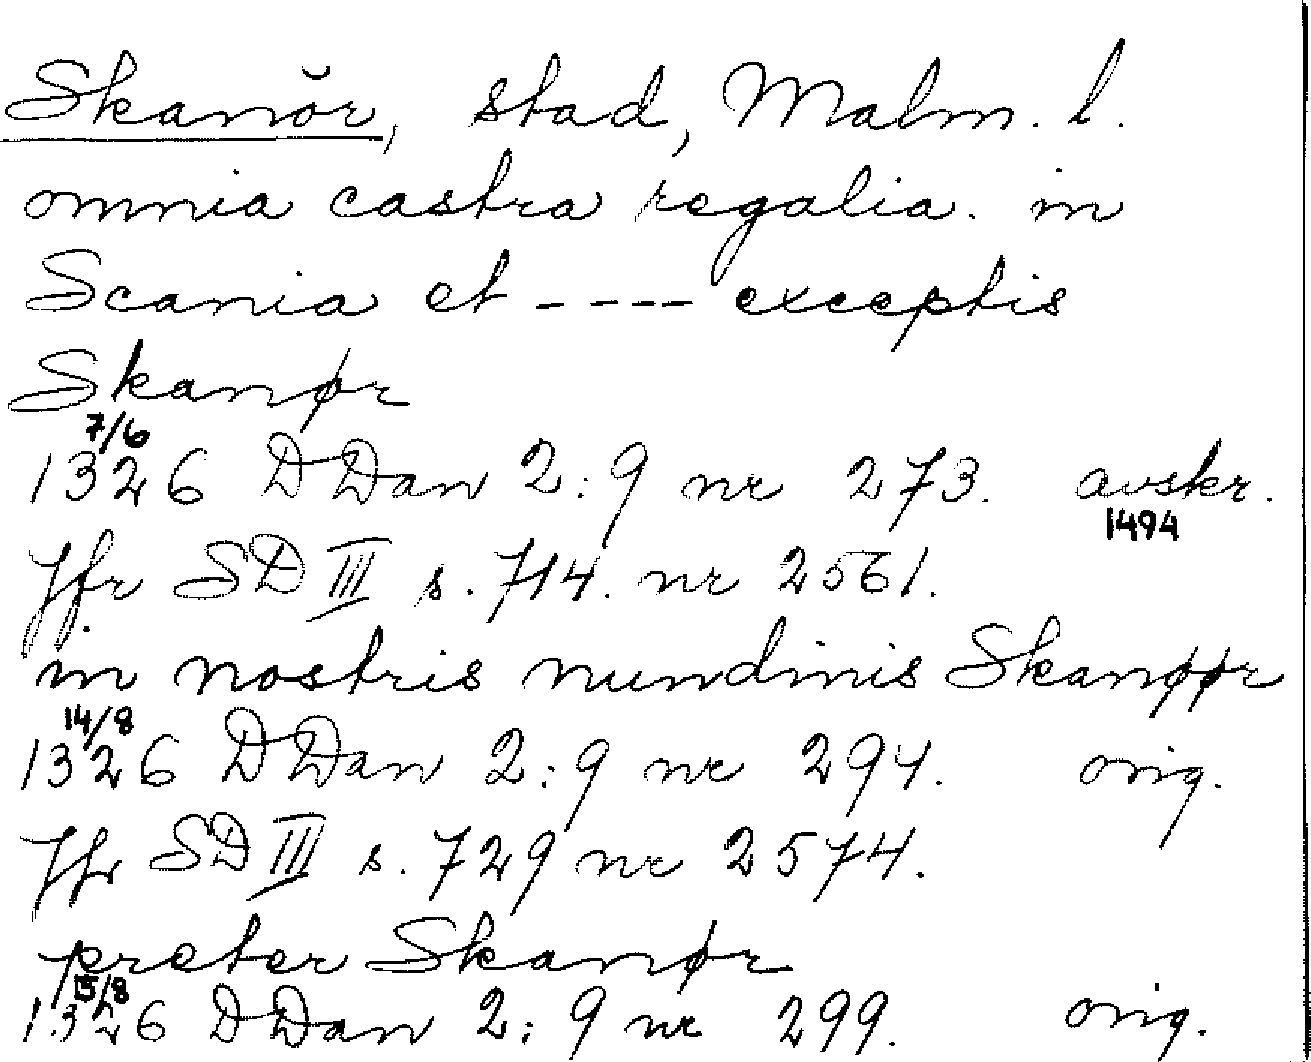 Skanör, stad, Malm. l.
omnia castra regalia. in
Scania et ---- exceptis
Skanør
7/6
1326 DDan 2:9 nr 273. avskr.
1494
Jfr SD III s. 714. nr 2561.
in nostris nundinis Skanøør
14/8
1326 DDan 2:9 nr 294. orig.
Jfr SD III s. 729 nr 2574.
preter Skanør
15/8
1326 DDan 2:9 nr 299. orig.